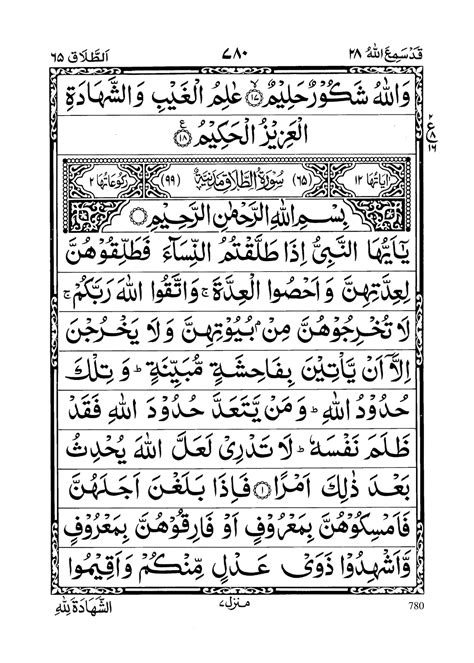 قَدْ سَمِعَ اللهُ ۲۸
۷۸۰
اَلطَّلَاق ۶۵
وَاللهُ شَكُوْرٌ حَلِيْمٌ ۙ﴿۱۷﴾ عٰلِمُ الْغَيْبِ وَالشَّهَادَةِ
الْعَزِيْزُ الْحَكِيْمُ ﴿۱۸﴾ ع
۲
ع ۸
۱۶
اٰيَاتُهَا ۱۲ (۶۵) سُوْرَةُ الطَّلَاقِ مَدَنِيَّةٌ (۹۹) رُكُوْعَاتُهَا ۲
بِسْمِ اللهِ الرَّحْمٰنِ الرَّحِيْمِ
يٰٓاَيُّهَا النَّبِيُّ اِذَا طَلَّقْتُمُ النِّسَآءَ فَطَلِّقُوْهُنَّ
لِعِدَّتِهِنَّ وَ اَحْصُوا الْعِدَّةَ ۚ وَاتَّقُوا اللهَ رَبَّكُمْ ۚ
لَا تُخْرِجُوْهُنَّ مِنْۢ بُيُوْتِهِنَّ وَ لَا يَخْرُجْنَ
اِلَّاۤ اَنْ يَّاْتِيْنَ بِفَاحِشَةٍ مُّبَيِّنَةٍ ؕ وَ تِلْكَ
حُدُوْدُ اللهِ ؕ وَ مَنْ يَّتَعَدَّ حُدُوْدَ اللهِ فَقَدْ
ظَلَمَ نَفْسَهٗ ؕ لَا تَدْرِىْ لَعَلَّ اللهَ يُحْدِثُ
بَعْدَ ذٰلِكَ اَمْرًا ﴿۱﴾ فَاِذَا بَلَغْنَ اَجَلَهُنَّ
فَاَمْسِكُوْهُنَّ بِمَعْرُوْفٍ اَوْ فَارِقُوْهُنَّ بِمَعْرُوْفٍ
وَّاَشْهِدُوْا ذَوَىْ عَدْلٍ مِّنْكُمْ وَ اَقِيْمُوا
780
منزل ۷
الشَّهَادَةَ لِلّٰهِ